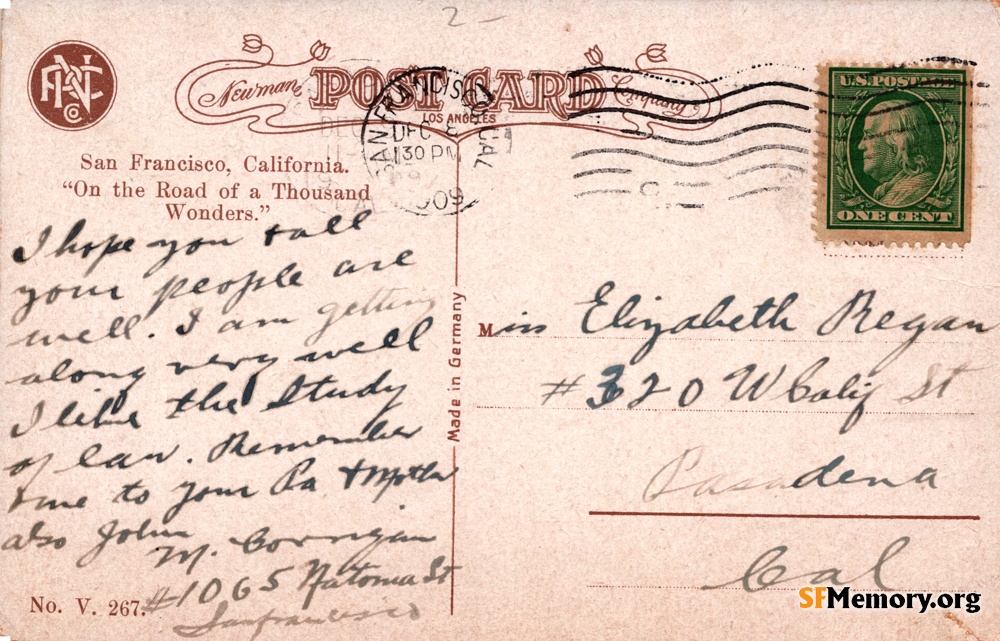 2-
Newman POST CARD Company
LOS ANGELES
SAN FRANCISCO, CAL
DEC 8
130 PM
1909
U.S. POSTAGE
ONE CENT
San Francisco, California.
"On the Road of a Thousand
Wonders."
I hope you & all
your people are
well. I am getting
along very well
I like the Study
of law. Remember
me to your Pa & Mother
also John
M. Corrigan
#1065 Natoma St
San Francisco
No. V. 267.
Made in Germany
Miss Elizabeth Regan
#320 W Calif St
Pasadena
Cal
SFMemory.org